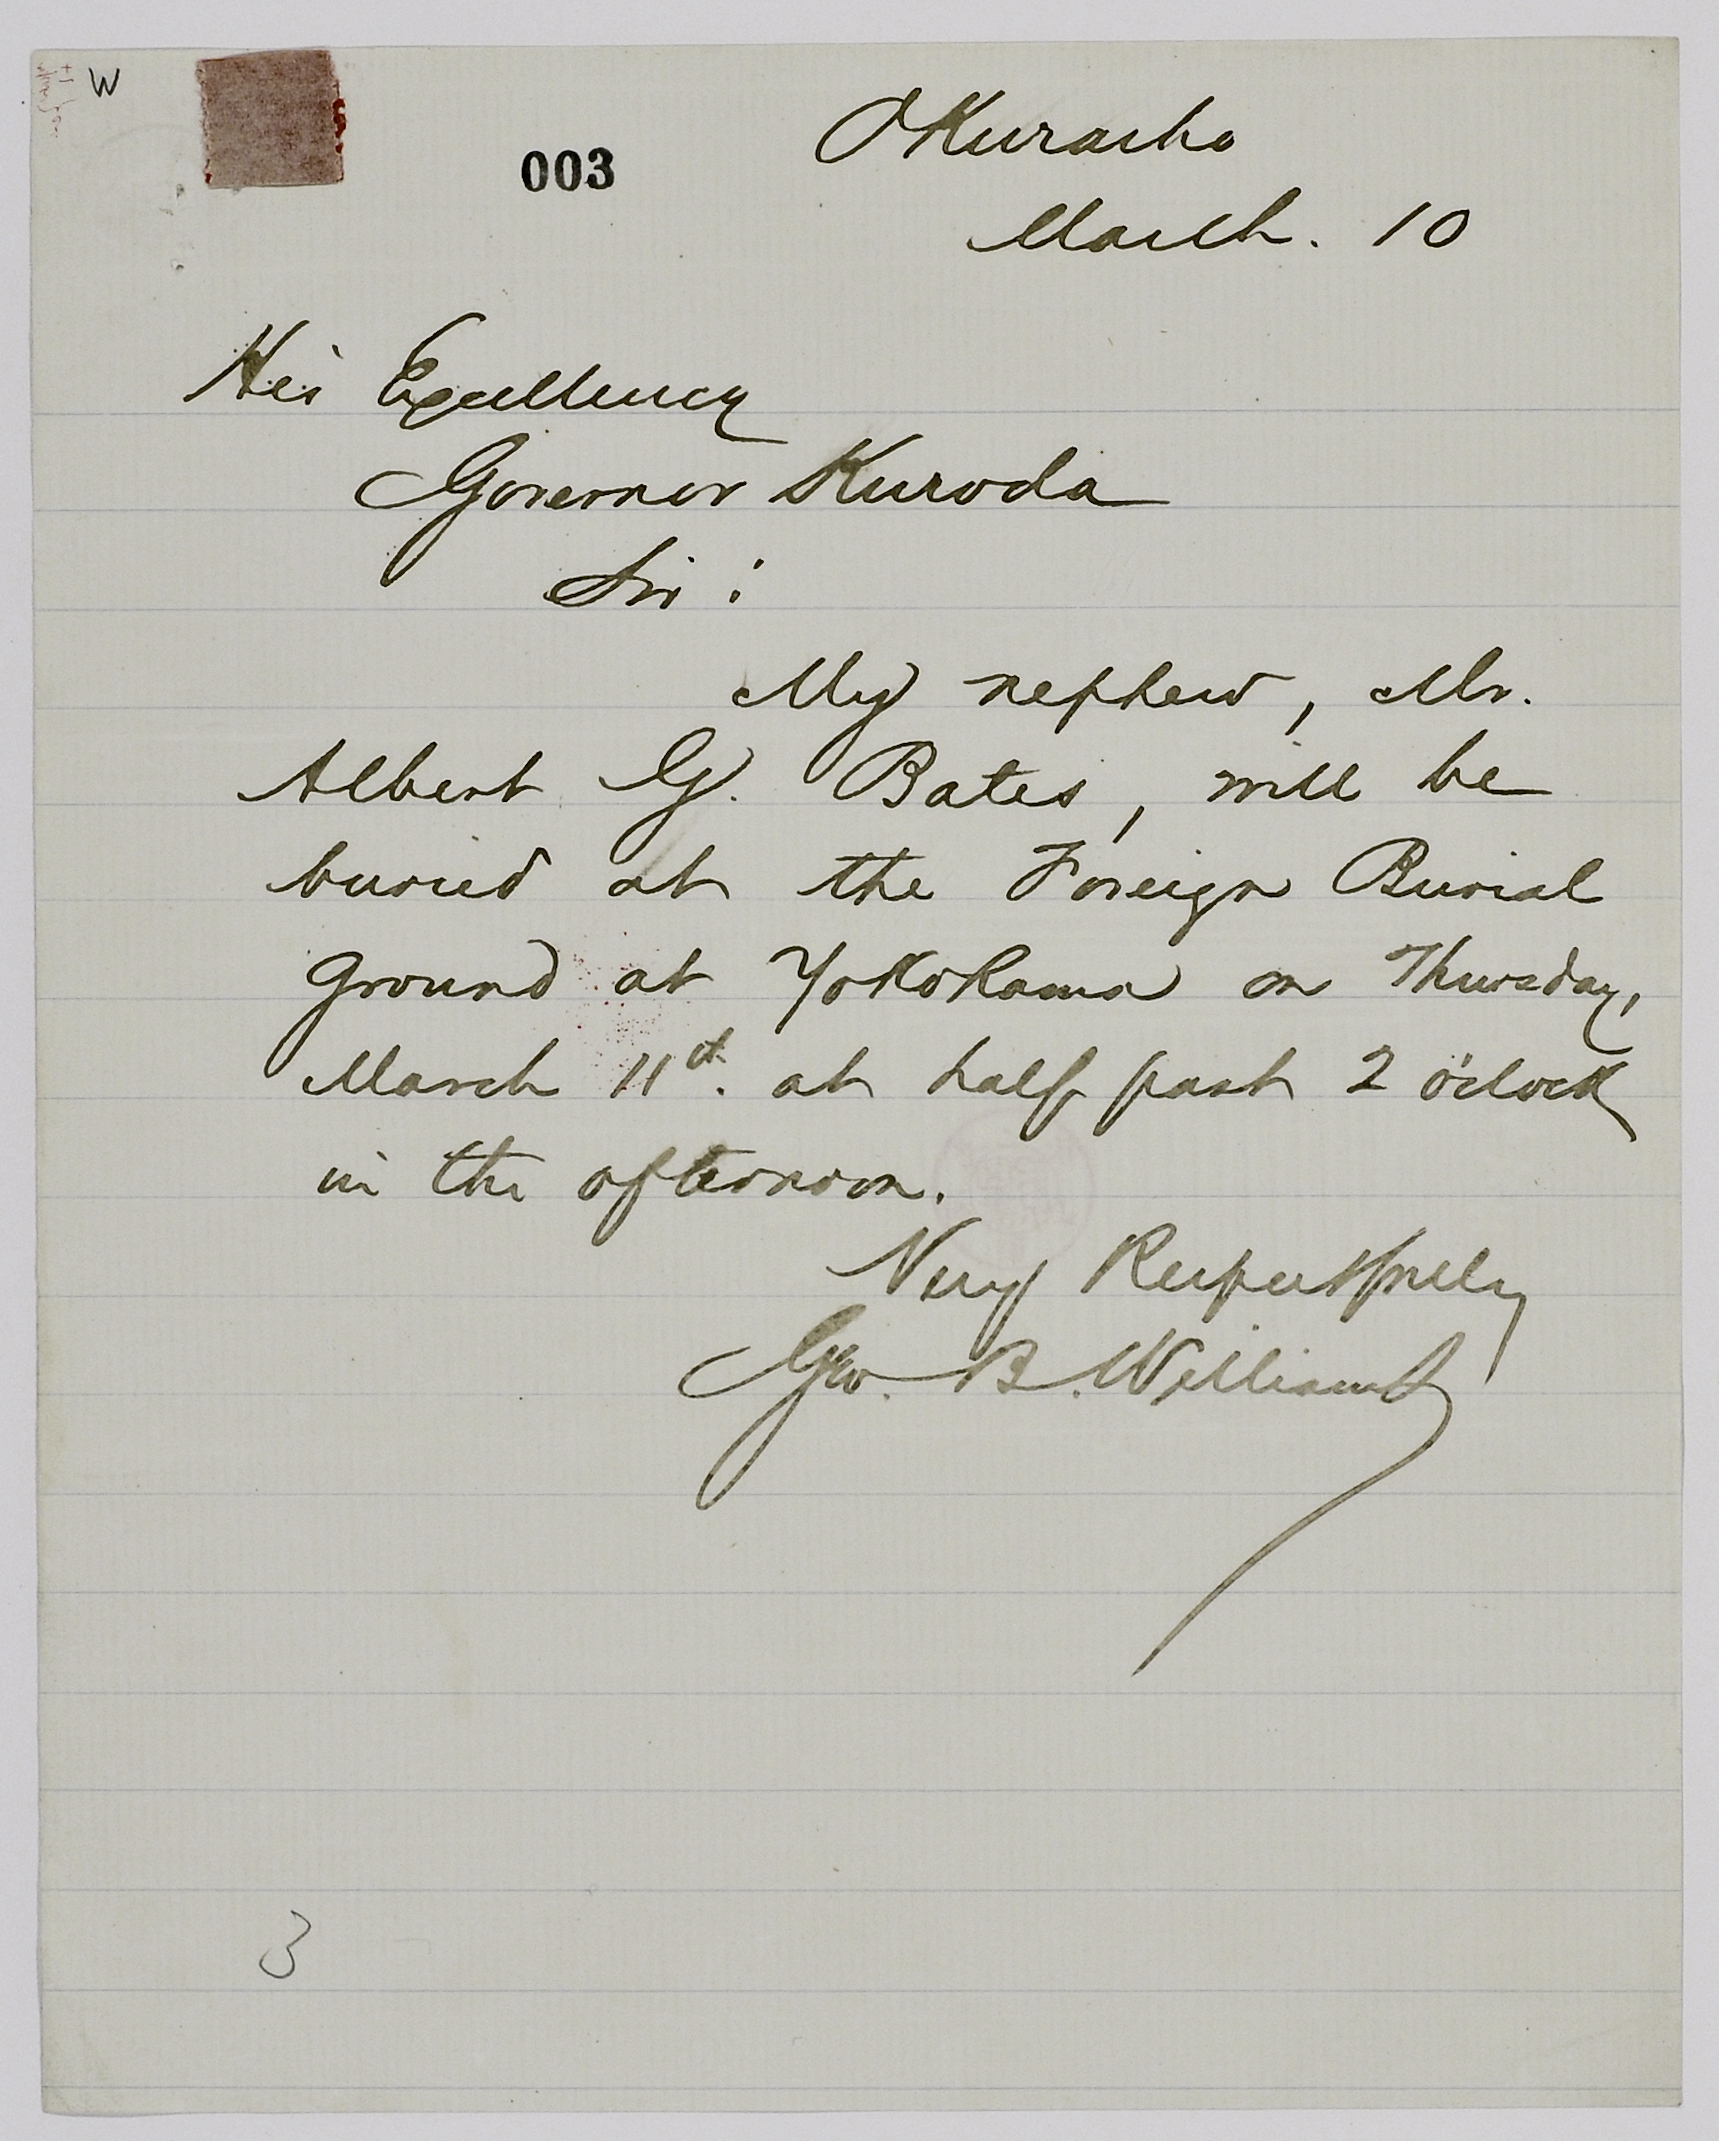 W
003
OKurasho
March. 10
His Excellency
Governor Kuroda
Sir :
My nephew, Mr.
Albert G. Bates, will be
buried at the Foreign Burial
Ground at Yokohama on Thursday,
March 11th. at half past 2 o'clock
in the afternoon.
Very Respectfully
Geo. B. Williams
3